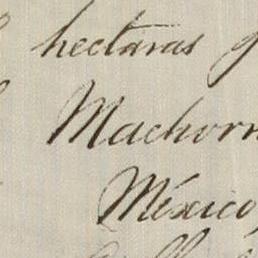 hectaras
Machorr
México,